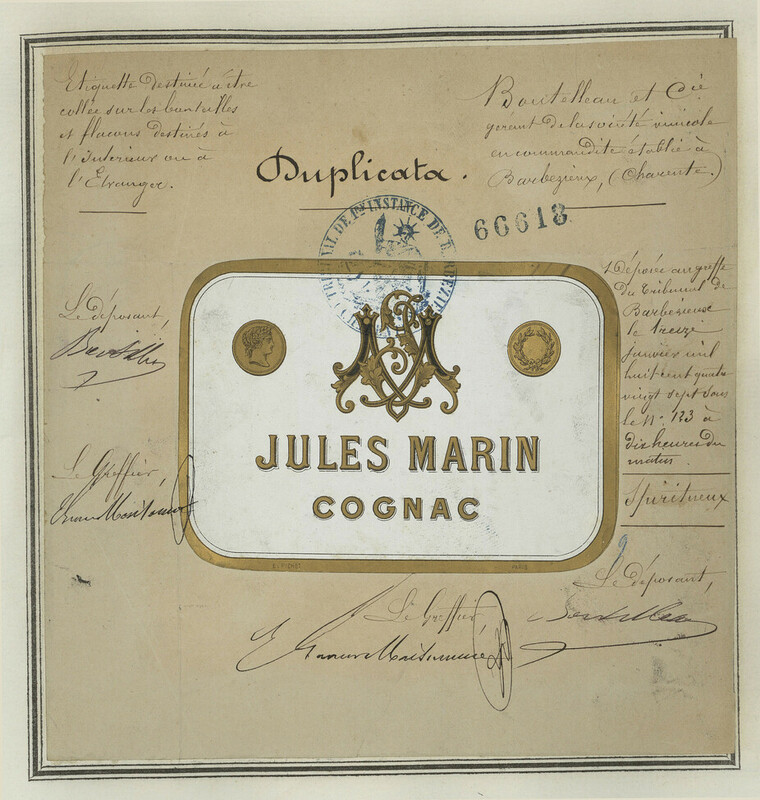 Etiquette destinée à être
collée sur les bouteilles
et flacons destinés à
l'Intérieur ou à
l'Etranger.
Duplicata.
Boutelleau et Cie
gérant de la société vinicole
en commandite établie à
Barbezieux, (Charente.)
66618
TRIBUNAL DE 1re INSTANCE DE BARBEZIEUX
Déposée au greffe
du Tribunal de
Barbezieux
le treize
janvier mil
huit cent quatre
vingt sept sous
le No. 123 à
dix heures du
matin.
Spiritueux
Le déposant,
Boutelleau
Le Greffier,
JM
JULES MARIN
COGNAC
PARIS
9
Le déposant,
Boutelleau
Le Greffier,